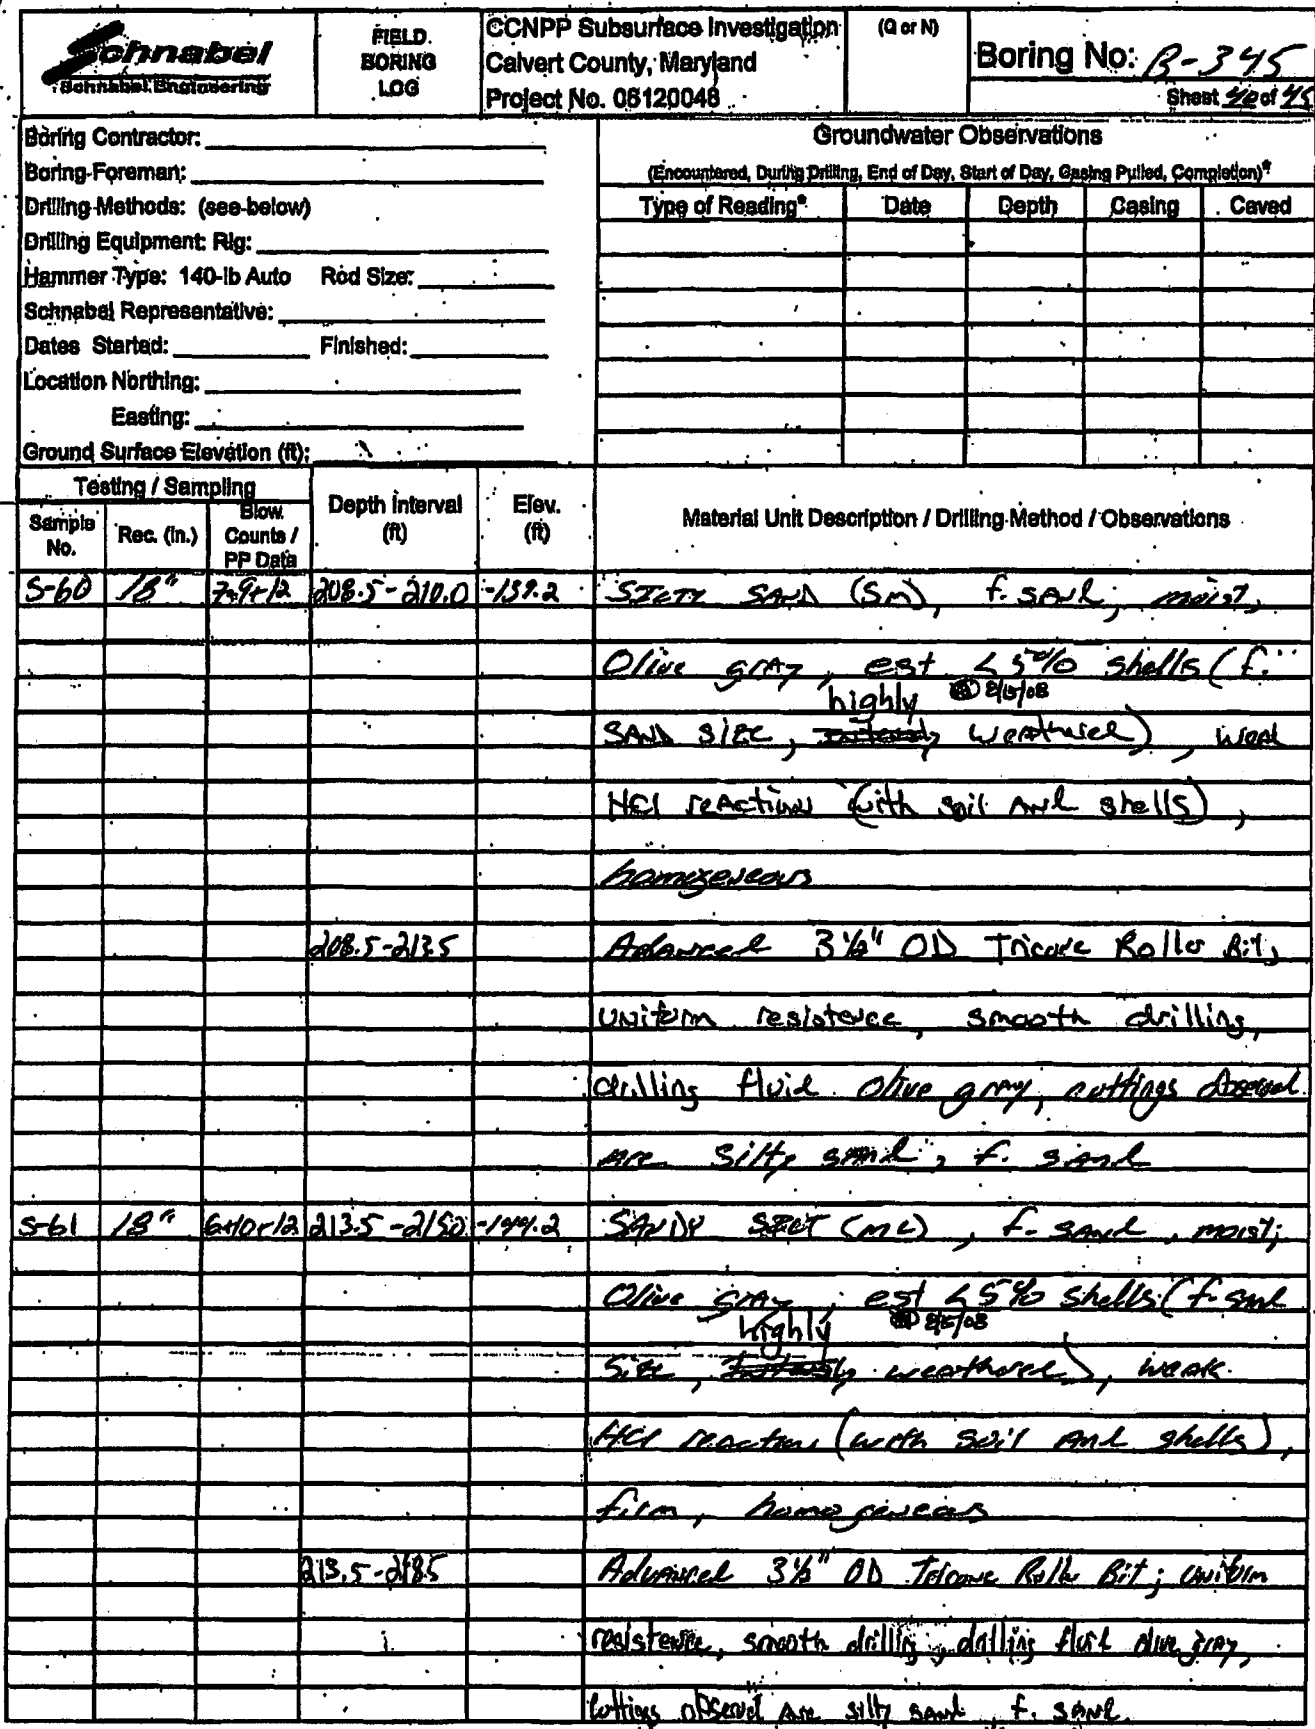 Schnabel
Schnabel Engineering
FIELD
BORING
LOG
CCNPP Subsurface Investigation
Calvert County, Maryland
Project No. 06120048
(Q or N)
Boring No: B-345
Sheet of 45
Boring Contractor:
Boring Foreman:
Drilling Methods: (see below)
Drilling Equipment: Rig:
Hammer Type: 140-lb Auto Rod Size:
Schnabel Representative:
Dates Started: Finished:
Location Northing:
Easting:
Ground Surface Elevation (ft):
Groundwater Observations
(Encountered, During Drilling, End of Day, Start of Day, Casing Pulled, Completion)*
Type of Reading* Date Depth Casing Caved
Testing / Sampling
Sample No. Rec. (in.) Blow Counts / PP Data Depth Interval (ft) Elev. (ft) Material Unit Description / Drilling Method / Observations
S-60 18" 7-9-12 208.5-210.0 -139.2 SILTY SAND (SM), f. sand; moist,
Olive gray, est <5% shells (f.
highly 8/15/08
SAND SIZE, weathered), weak
HCl reaction (with soil and shells),
homogeneous
208.5-213.5 Advanced 3 1/2" OD Tricone Roller Bit,
uniform resistence, smooth drilling,
drilling fluid olive gray, cuttings observed
are silty sand, f. sand
S-61 18" 6-10-12 213.5-215.0 -144.2 SANDY SILT (ML), f. sand, moist;
Olive gray, est <5% shells (f. sand
highly 8/15/08
size, weathered), weak
HCl reaction (with soil and shells),
firm, homogeneous
213.5-218.5 Advanced 3 1/2" OD Tricone Roller Bit; uniform
resistence, smooth drilling, drilling fluid olive gray,
cuttings observed are silty sand, f. sand.